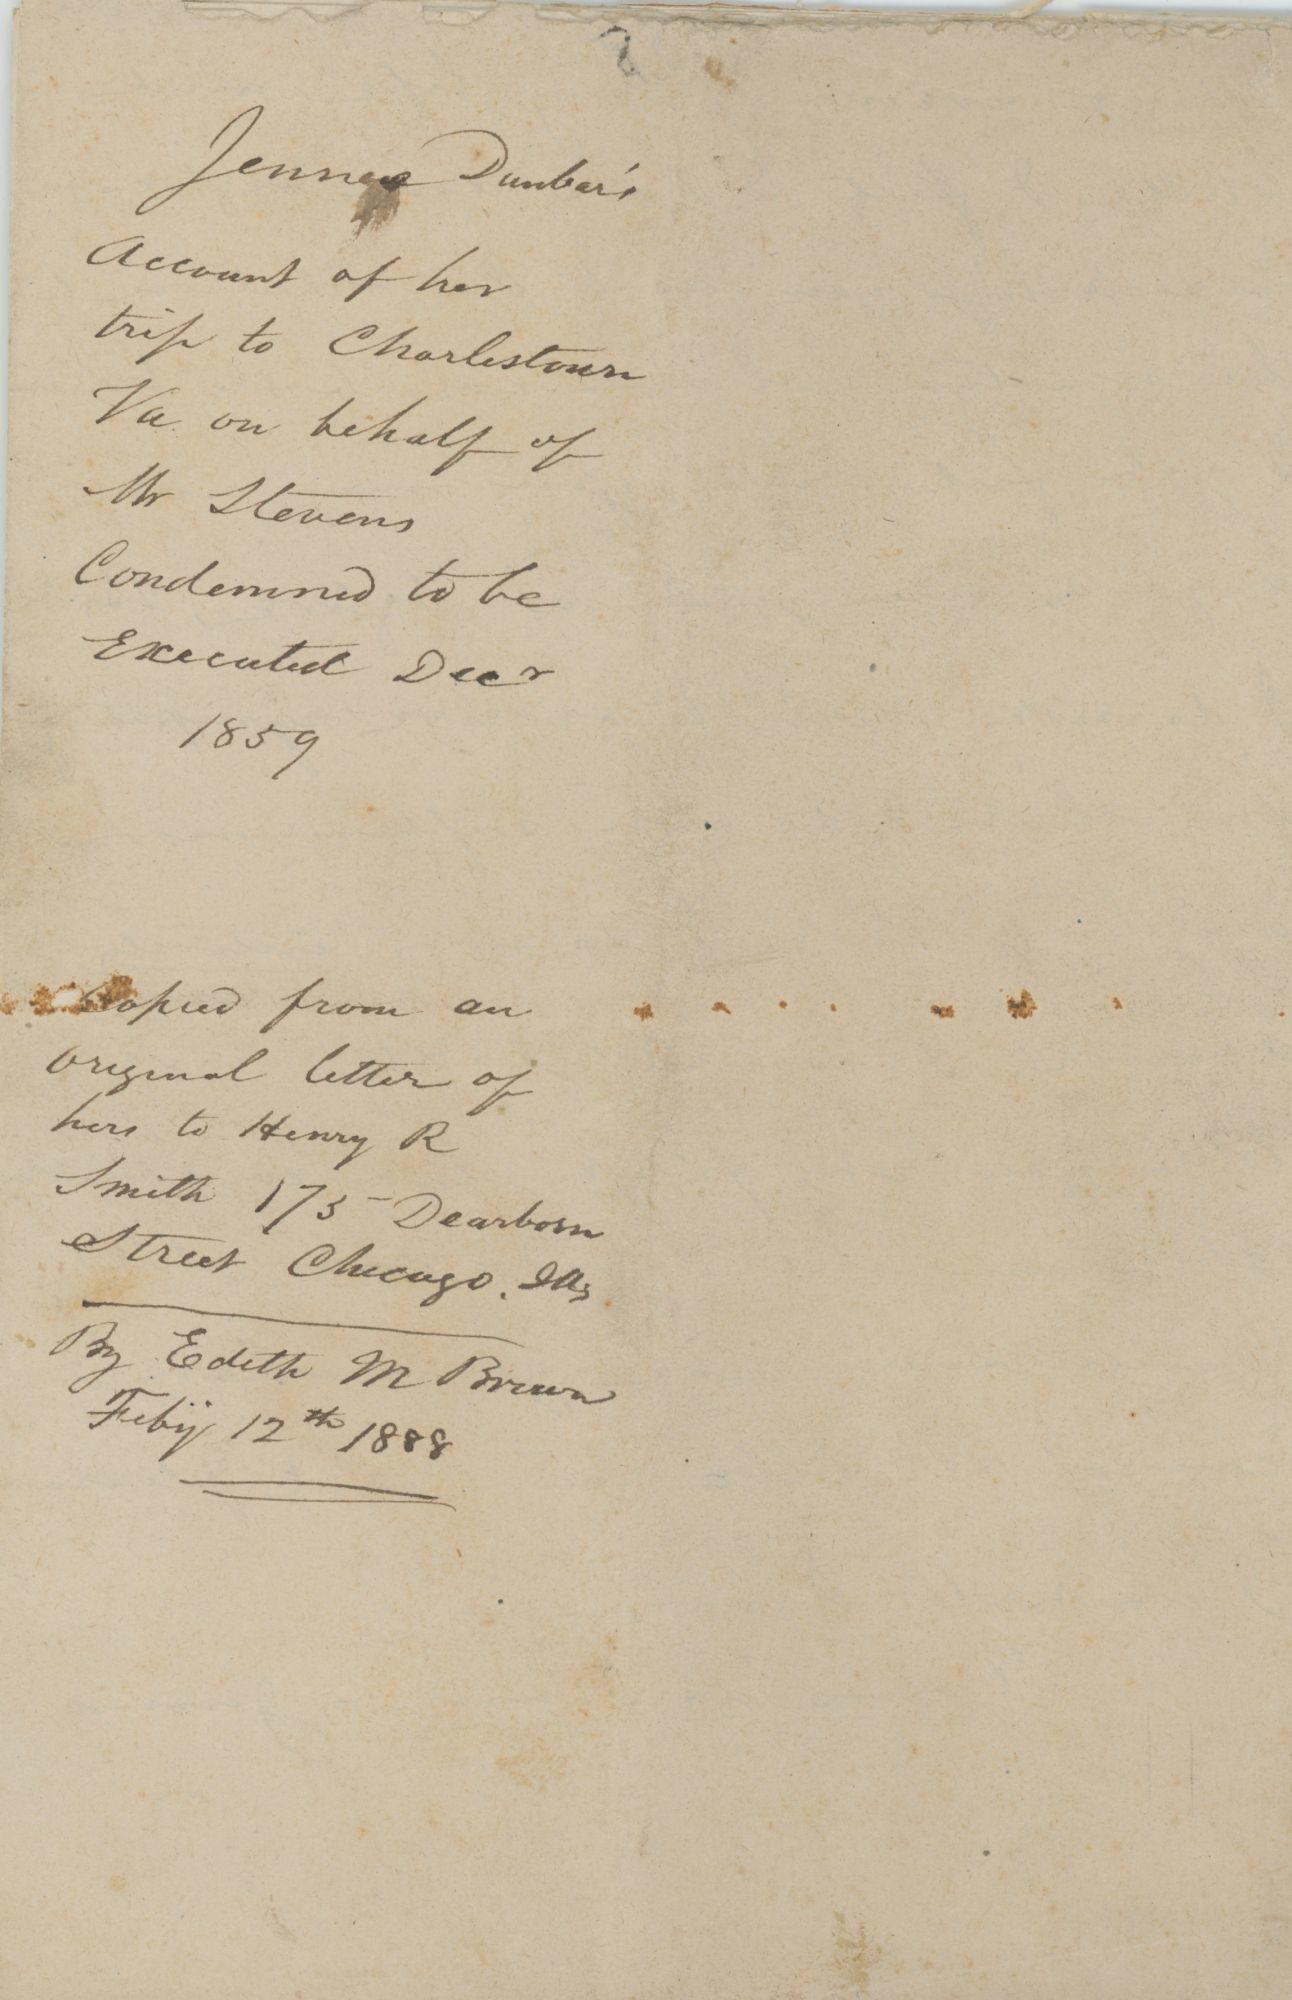 Jennee Dunbar's
Account of her
trip to Charlestown
Va. on behalf of
Mr Stevens
Condemned to be
Executed Decr
1859
Copied from an
original letter of
hers to Henry R
Smith 175 Dearborn
Street Chicago. Ills
By Edith M Brown
Feby 12th 1888